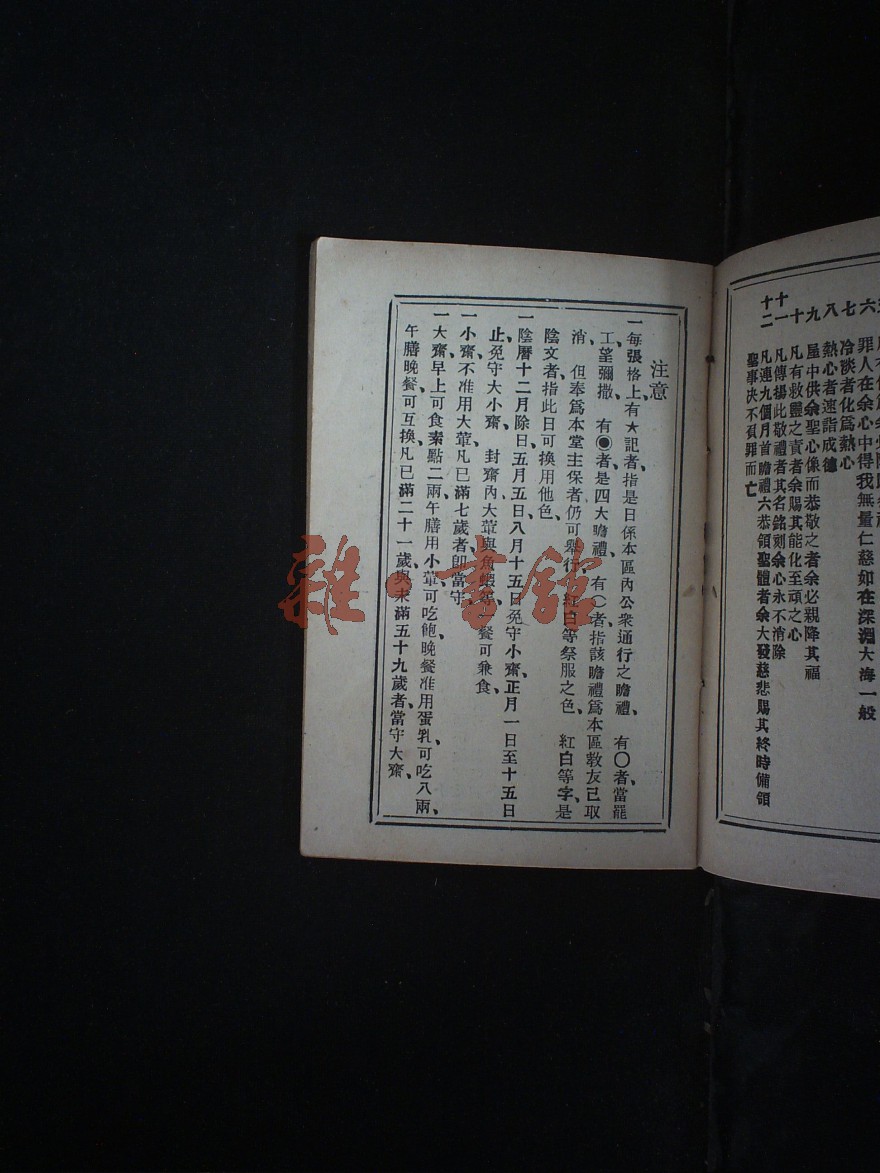 六 罪人在余心中得我無量仁慈如在深淵大海一般
七 冷淡者化爲熱心
八 熱心者速詣成德
九 量中供余聖心像而恭敬之者余必親降其福
十 凡有救靈之責者余賜其能化至頑之心
十一 凡傳揚此敬禮者其名銘刻余心永不消除
十二 凡連九個月首瞻禮六恭領聖體者余大發慈悲賜其終時備領
聖事决不負罪而亡
注意
一每張格上有★記者、指是日係本區內公衆通行之瞻禮、有〇者當罷
工望彌撒、有◉者是四大瞻禮、有（）者指該瞻禮爲本區敎友已取
消、但奉爲本堂主保者仍可舉行、紅白等祭服之色、紅白等字是
陰文者指此日可換用他色、
一陰曆十二月除日、五月五日、八月十五日免守小齋、正月一日至十五日
止、免守大小齋、封齋內大葷與魚蝦等一餐可兼食、
一小齋不准用大葷、凡已滿七歲者、卽當守、
一大齋早上可食素點二兩、午膳用小葷可吃飽、晚餐准用蛋乳、可吃八兩、
午膳晚餐可互換、凡已滿二十一歲、與未滿五十九歲者、當守大齋、
雜·書館